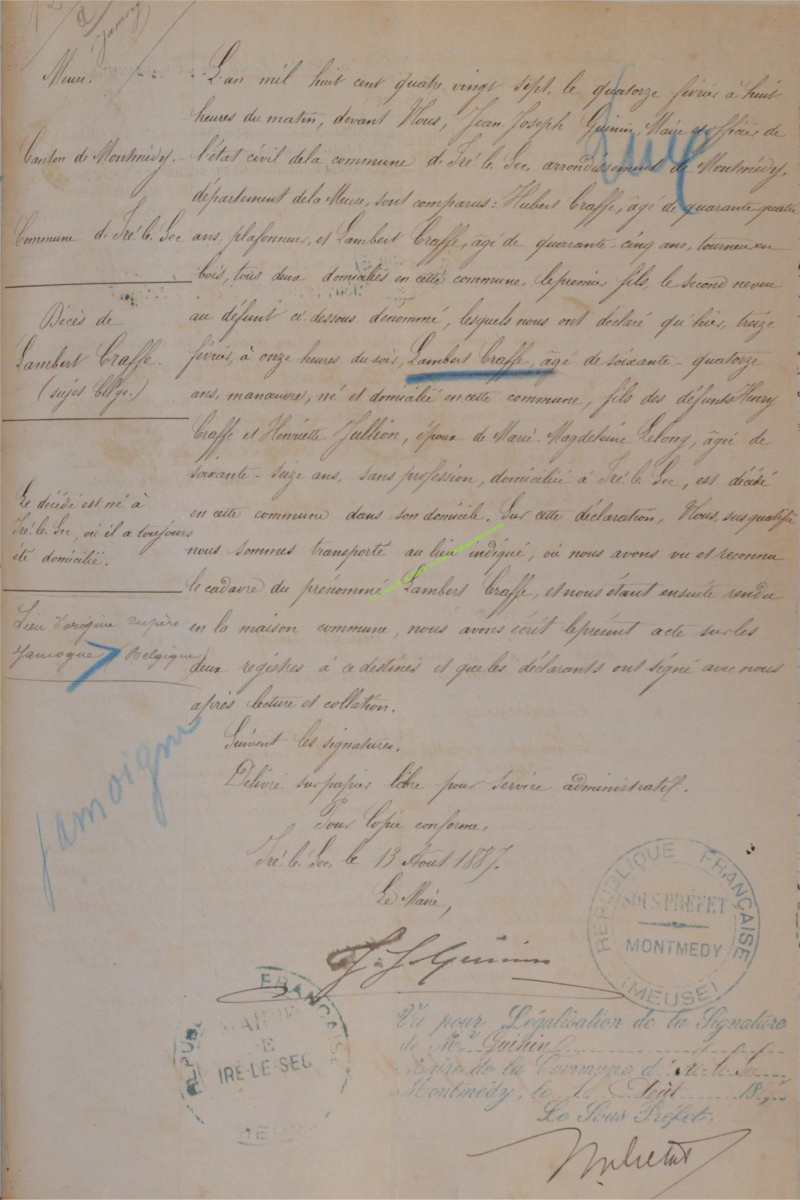 Jamoigne
Meuse.
Canton de Montmédy.
Commune d'Iré-le-Sec
Décès de
Lambert Craffe.
(sujet belge.)
Le décédé est né à
Iré-le-Sec, où il a toujours
été domicilié.
Lieu d'origine du père
Jamogne Belgique
Jamoigne
L'an mil huit cent quatre vingt sept, le quatorze février à huit
heures du matin, devant Nous, Jean Joseph Guinin, Maire et officier de
l'état civil de la commune d'Iré-le-Sec, arrondissement de Montmédy,
département de la Meuse, sont comparus: Hubert Craffe, âgé de quarante-quatre
ans, plafonneur, et Lambert Craffe, âgé de quarante-cinq ans, tourneur en
bois, tous deux domiciliés en cette commune, le premier fils, le second neveu
au défunt ci-dessous dénommé, lesquels nous ont déclaré qu'hier, treize
février, à onze heures du soir, Lambert Craffe, âgé de soixante-quatorze
ans, manœuvre, né et domicilié en cette commune, fils des défunts Henry
Craffe et Henriette Jullion, époux de Marie-Magdeleine Lelong, âgée de
soixante-seize ans, sans profession, domiciliée à Iré-le-Sec, est décédé
en cette commune dans son domicile. Sur cette déclaration, Nous, susqualifié
nous sommes transporté au lieu indiqué, où nous avons vu et reconnu
le cadavre du prénommé Lambert Craffe, et nous étant ensuite rendu
en la maison commune, nous avons écrit le présent acte sur les
deux registres à ce destinés et que les déclarants ont signé avec nous
après lecture et collation.
Suivent les signatures.
Délivré sur papier libre pour service administratif.
Pour Copie conforme.
Iré-le-Sec, le 13 Août 1887.
Le Maire,
J. J Guinin
REPUBLIQUE FRANÇAISE
SOUS-PRÉFET
MONTMEDY
(MEUSE)
RÉPUB FRANÇAISE
MAIRIE
DE
IRE-LE-SEC
MEUSE
Vu pour Légalisation de la Signature
de Mr Guihin
Maire de la Commune d'Iré-le-Sec
Montmédy, le Août 18
Le Sous Préfet.